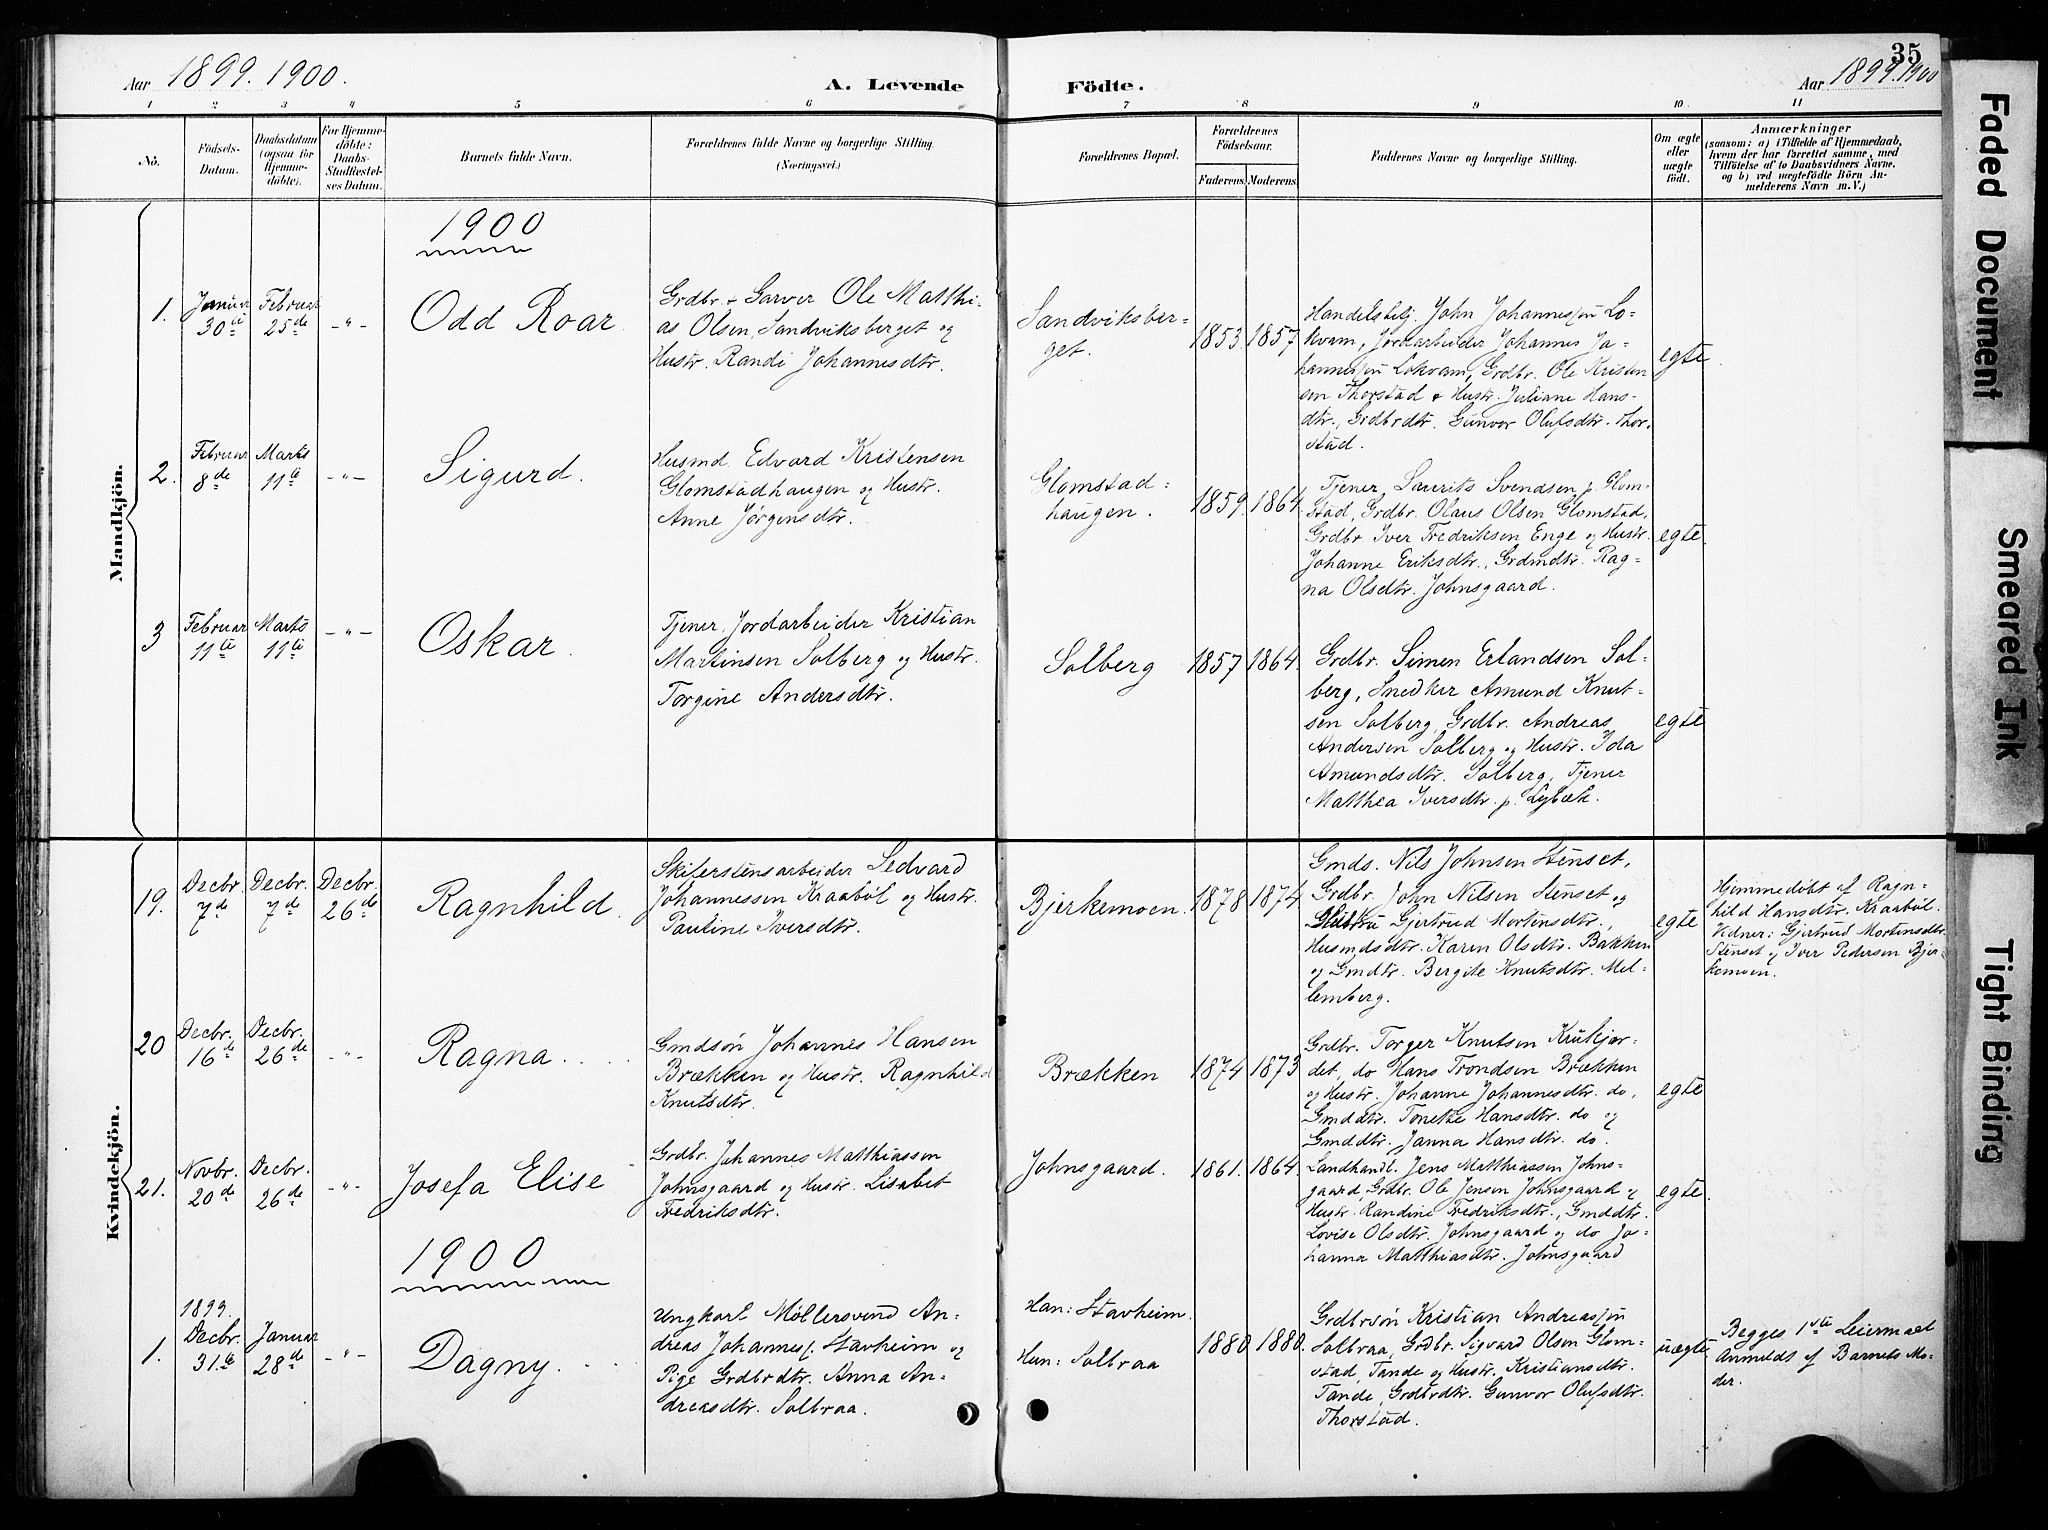 35
Aar 1899. 1900.
A. Levende
Födte.
Aar 1899. 1900
1 2 3 4 5 6 7 8 9 10 11
No.
Födsels-
Datum.
Daabsdatum
(ogsaa for
Hjemme-
döbte).
For Hjemme-
döbte:
Daabs-
Stadfæstel-
ses Datum.
Barnets fulde Navn.
Forældrenes fulde Navne og borgerlige Stilling.
(Næringsvei.)
Forældrenes Bopæl.
Forældrenes
Födselsaar.
Faderens. Moderens.
Faddernes Navne og borgerlige Stilling.
Om ægte
eller
uægte
födt.
Anmærkninger
(saasom: a) i Tilfælde af Hjemmedaab,
hvem der har forrettet samme, med
Tilföielse af to Daabsvidners Navne,
og b) ved uægtefödte Börn An-
melderens Navn m. V.)
Mandkjön.
1900
1.
Januar
30te
Februar
25de
-"-
Odd Roar
Grdbr. + Garver Ole Matthi-
as Olsen, Sandviksberget og
Hustr. Randi Johannesdtr.
Sandviksber-
get.
1853. 1857
Handelsbetj. John Johannessen Lo-
kvam, Jordarbeider Johannes Jo-
hannessen Lokvam, Grdbr. Ole Kristen
sen Thorstad + Hustr. Juliane Hans-
dtr., Grdbrdtr. Gunvor Olufsdtr. Thor-
stad.
egte.
2.
Februar
8de
Marts
11te
-"-
Sigurd.
Husmd. Edvard Kristensen
Glomstadhaugen og Hustr.
Anne Jørgensdtr.
Glomstad-
haugen.
1859. 1864
Tjener Laurits Svendsen p. Glom-
stad, Grdbr. Olaus Olsen Glomstad,
Grdbr Iver Fredriksen Enge og Hustr.
Johanne Eriksdtr., Grdmdtr. Rag-
na Olsdtr. Johnsgaard.
egte.
3
Februar
11te
Marts
11te
-"-
Oskar.
Tjener, Jordarbeider Kristian
Martinsen Solberg og Hustr.
Torgine Andersdtr.
Solberg
1857 1864.
Grdbr. Simen Erlandsen Sol-
berg, Snedker Amund Knut-
sen Solberg, Grdbr. Andreas
Andersen Solberg og Hustr. Ida
Amundsdtr. Solberg, Tjener
Matthea Iversdtr. p. Lybæk.
egte
Kvindekjön.
19.
Decbr.
7de
Decbr.
7de
Decbr.
26de
Ragnhild.
Skiferstensarbeider Sedvard
Johannessen Kraabøl og Hustr.
Pauline Iversdtr.
Bjerkemoen.
1878 1874.
Gmds. Nils Johnsen Stenset,
Grdbr. John Nilsen Stenset og
Hustru Gjertrud Mortensdtr.,
Husmdsdtr. Karen Olsdtr. Bakken
og Gmdtr. Bergite Knutsdtr. Mel-
lemberg.
egte
Hjemmedøbt af Ragn-
hild Hansdtr. Kraabøl.
Vidner: Gjertrud Mortensdtr.
Stenset og Iver Pedersen Bjer-
kemoen.
20
Decbr.
16de
Decbr.
26de
-"-
Ragna.
Gmdsøn Johannes Hansen
Brækken og Hustr. Ragnhild
Knutsdtr.
Brækken
1874 1873
Grdbr. Torger Knutsen Krukjor-
det, do Hans Trondsen Brækken
og Hustr. Johanne Johannesdtr. do,
Gmddtr. Tonette Hansdtr. do og
Gmddtr. Janna Hansdtr. do.
egte
21.
Novbr.
20de
Decbr.
26de
-"-
Josefa Elise
Grdbr. Johannes Matthiassen
Johnsgaard og Hustr. Lisabet
Fredriksdtr.
Johnsgaard.
1861. 1864.
Landhandl. Jens Matthiassen Johns-
gaard, Grdbr. Ole Jensen Johnsgaard og
Hustr. Randine Fredriksdtr., Gmddtr.
Lovise Olsdtr. Johnsgaard og do Jo-
hanna Matthiasdtr. Johnsgaard
egte.
1900
1.
1899.
Decbr.
31te
Januar
28de
-"-
Dagny.
Ungkarl Møllersvend An-
dreas Johannes. Stavheim og
Pige Grdbrdtr. Anna An-
dreasdtr. Solbraa.
Han: Stavheim.
Hun: Solbraa
1880 1880.
Grdbrsøn Kristian Andreassen
Solbraa, Grdbr. Sigvard Olsen Glom-
stad, Tande og Hustr. Kristiansdtr.
Tande, Grdbrdtr. Gunvor Olufsdtr.
Thorstad.
uægte
Begges 1ste Leiermaal
Anmeldt af Barnets Mo-
der.
Faded Document
Smeared Ink
Tight Binding